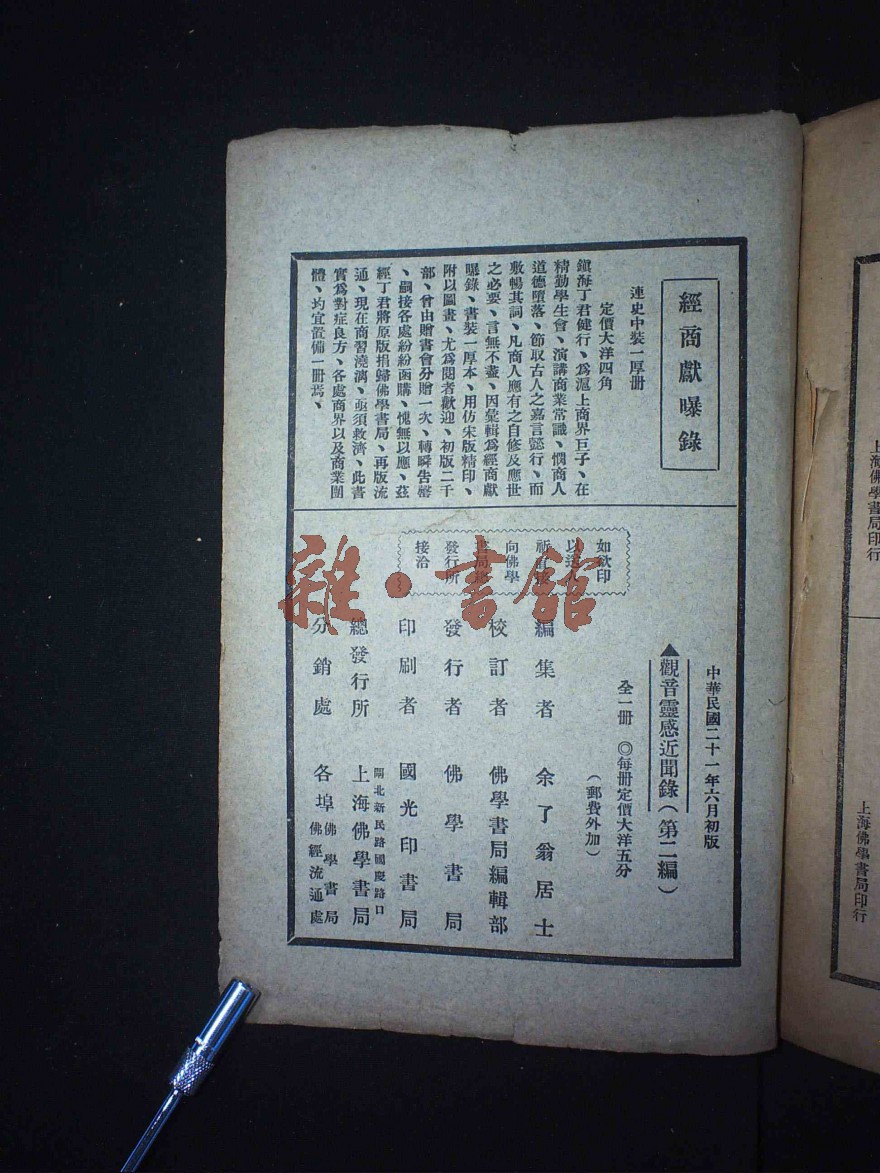 經商獻曝錄
連史中裝一厚册
定價大洋四角
鎮海丁君健行、爲滬上商界巨子、在
精勤學生會、演講商業常識、憫商人
道德墮落、節取古人之嘉言懿行、而
敷暢其詞、凡商人應有之自修及應世
之必要、言無不盡、因彙輯爲經商獻
曝錄、書裝一厚本、用仿宋版精印、
附以圖畫、尤爲閱者歡迎、初版二千
部、曾由贈書會分贈一次、轉瞬告罄
、嗣接各處紛紛函購、愧無以應、茲
經丁君將原版捐歸佛學書局、再版流
通、現在商習澆漓、亟須救濟、此書
實爲對症良方、各處商界以及商業團
體、均宜置備一册焉、
中華民國二十一年六月初版
▲觀音靈感近聞錄(第二編)
全一册 ◎每册定價大洋五分
(郵費外加)
如欲印
以送
祈
向佛學
書局
發行所
接洽
編集者 余了翁居士
校訂者 佛學書局編輯部
發行者 佛學書局
印刷者 國光印書局
閘北新民路國慶路口
總發行所 上海佛學書局
分銷處 各埠佛學書局
佛經流通處
上海佛學書局印行
上海佛學書局印行
雜·書館